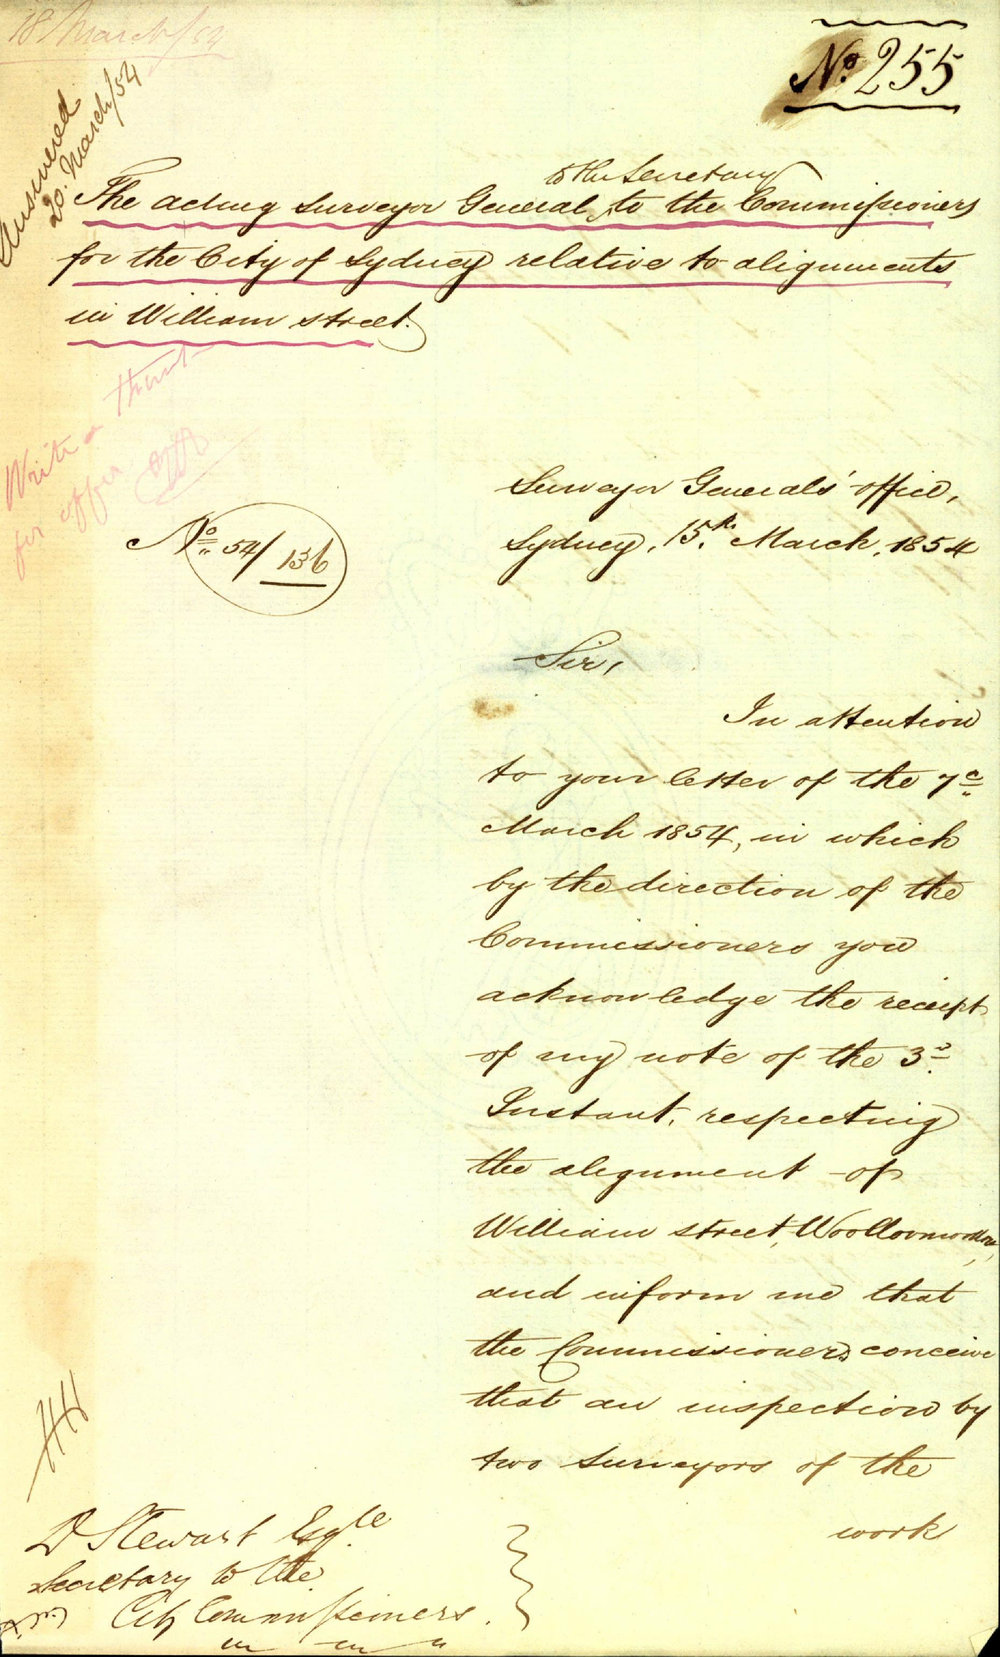 18 March/54
Answered
20. March/54
No. 255
to the Secretary
The acting Surveyor General, to the Commissioners
for the City of Sydney relative to alignments
in William street.
Write a thank
for offer
No. 54/136
Surveyor Generals' office,
Sydney, 15th. March, 1854
Sir,
In attention
to your letter of the 7th
March 1854, in which
by the direction of the
Commissioners you
acknowledge the receipt
of my note of the 3rd.
Instant, respecting
the alignment of
William street, Woolloomooloo,
and inform me that
the Commissioners conceive
that an inspection by
two surveyors of the
work
D Stewart Esqre
Secretary to the
City Commissioners.